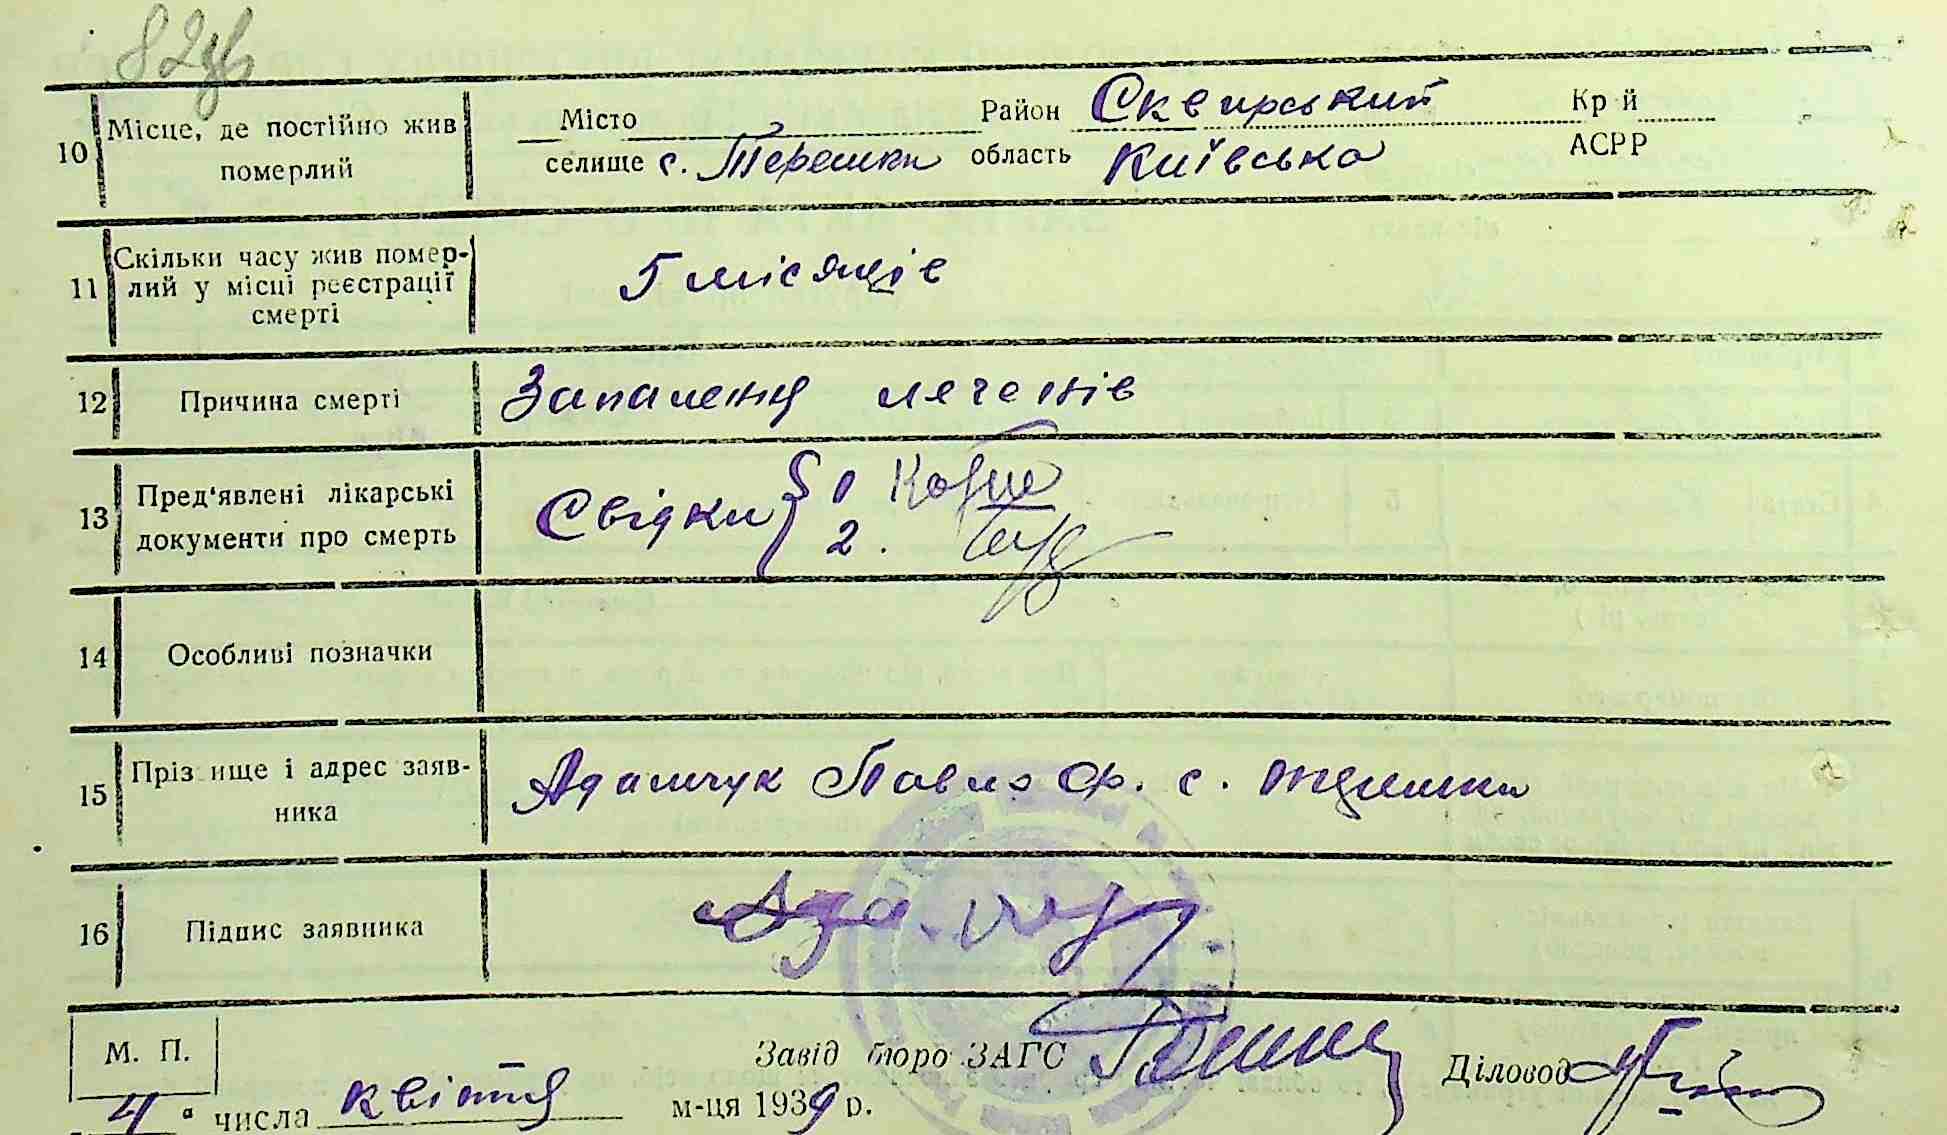 82
10 Місце, де постійно жив померлий
Місто Район Сквирський Кр й
селище с. Терешки область Київська АСРР
11 Скільки часу жив помер-
лий у місці реєстрації
смерті
5 місяців
12 Причина смерті Запаленця легенів
13 Пред'явлені лікарські
документи про смерть
Свідки 1
2.
14 Особливі позначки
15 Пріз ище і адрес заяв-
ника
Адамчук Павло Ф. с. Терешки
16 Підпис заявника
М. П.
Завід бюро ЗАГС Діловод
4 числа квітня м-ця 1939 р.